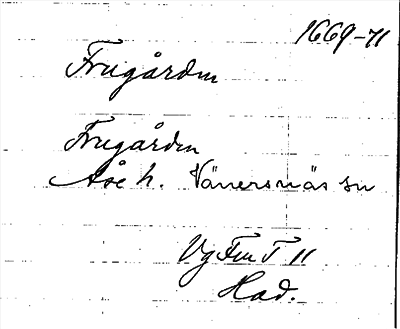 1669-71
Frugården
Frugården
Åse h. Vänersnäs sn
Vg Fm T 11
Had.